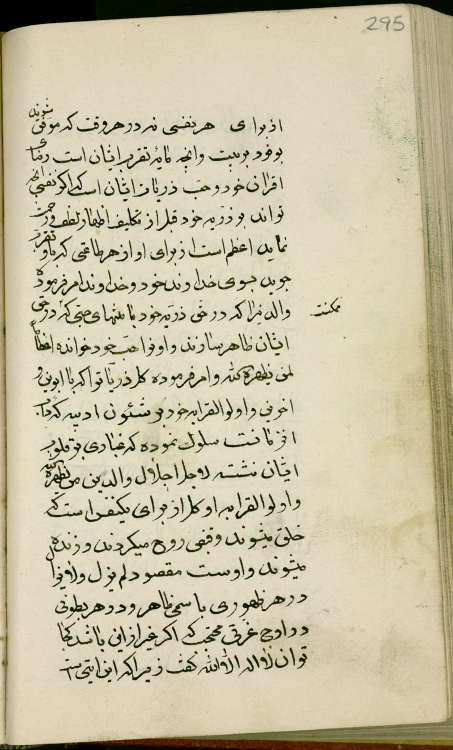 295
از برای هر نفسی نه در هر وقت که موفق شوند
بوفود بر بیت و آنچه مایه تقرب ایشان است رضای
اقران خود و حب ذریات ایشان است که اگر نفسی آنچه
تواند بر ذریه خود قبل از تکلیف اظهار لطف و رحمت
نماید اعظم است از برای او از هر طاعتی که باو تقرب
جوید بسوی خداوند خود و خداوند امر فرموده
والدین را که در حق ذریه خود بمنتهای حبی که در حق
ممکنست
ایشان ظاهر سازند و او را حب خود خوانده اعظاماً
لمن یظهره الله و امر فرموده کل ذریات را که با ابوین و
اخوین و اولو القرابه خود در شئون ادبیه که
سلوک نموده که غباری بر قلوب
ایشان ننشسته لاجل اجلال والدین من یظهره الله
و اولو القرابه او کل از برای یکنفس است که
خلق میشوند و قبض روح میکردند و زنده
میشوند و اوست مقصود لم یزل و لا یزال
در هر ظهوری باسمی ظاهر و در هر بطونی
در اوج عزتی محتجب که اگر غیر از این باشد کجا
توان لا اله الا الله گفت زیرا که این آیتی است